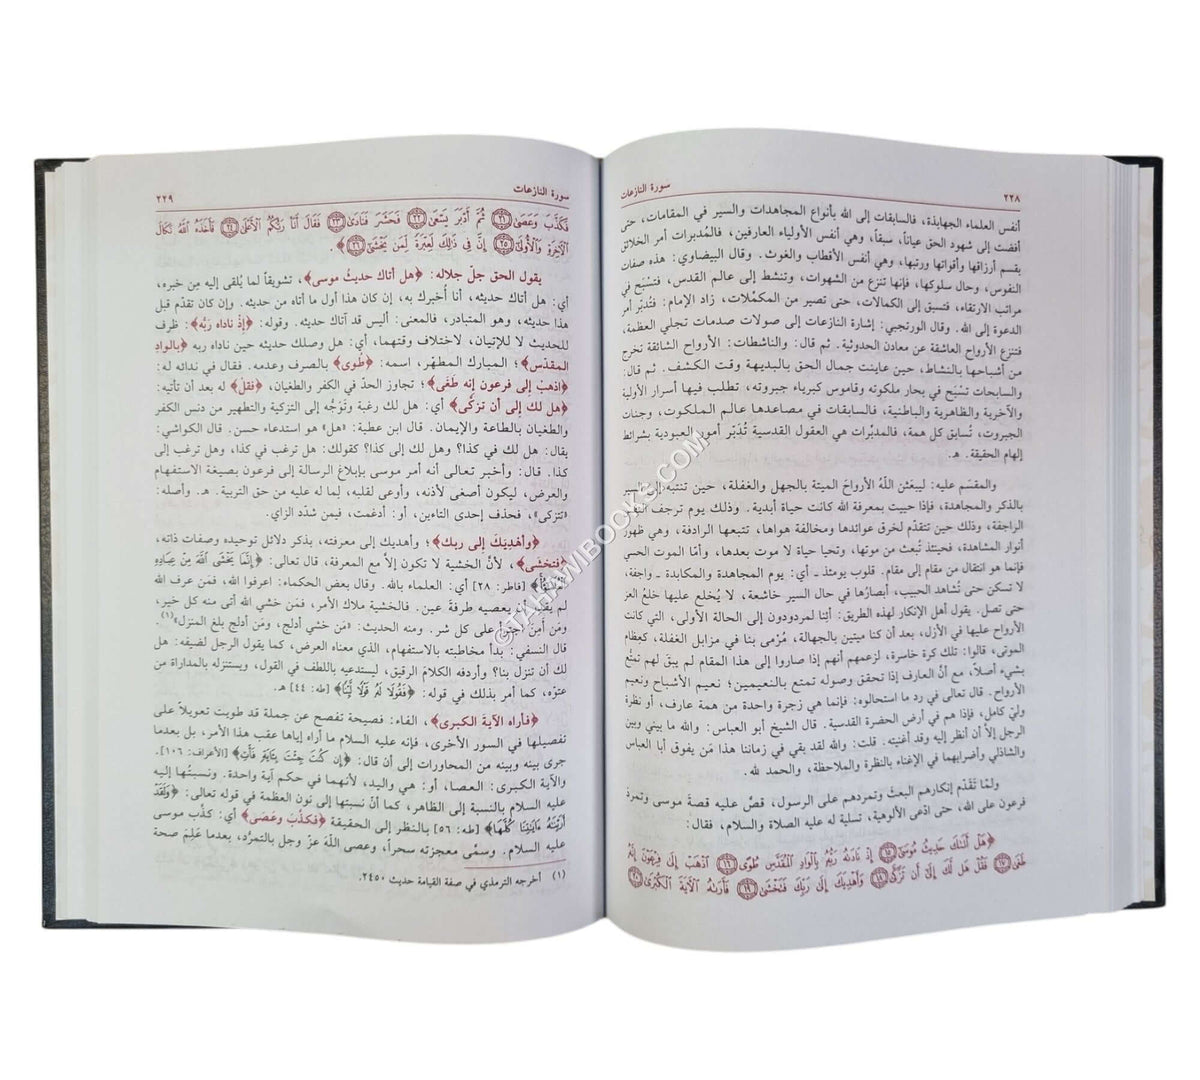 ٢٢٨
سورة النازعات
أنفس العلماء الجهابذة، فالسابقات إلى الله بأنواع المجاهدات والسير في المقامات، حتى
أفضت إلى شهود الحق عياناً، سبقاً، وهي أنفس الأولياء العارفين، فالمُدبرات أمر الخلائق
بقسم أرزاقها وأقواتها ورتبها، وهي أنفس الأقطاب والغوث. وقال البيضاوي: هذه صفات
النفوس، وحال سلوكها، فإنها تنزع من الشهوات، وتنشط إلى عالم القدس، فتسْبَح في
مراتب الارتقاء، فتسبق إلى الكمالات، حتى تصير من المكمِّلات، زاد الإمام: فتُدبّر أمر
الدعوة إلى الله. وقال الورتجبي: إشارة النازعات إلى صولات صدمات تجلي العظمة،
فتنزع الأرواح العاشقة عن معادن الحدوثية. ثم قال: والناشطات: الأرواح الشائقة تخرج
من أشباحها بالنشاط، حين عاينت جمال الحق بالبديهة وقت الكشف. ثم قال:
والسابحات تسْبَح في بحار ملكوته وقاموس كبرياء جبروته، تطلب فيها أسرار الأولية
والآخرية والظاهرية والباطنية، فالسابقات في مصاعدها عالم الملكوت، وجنات
الجبروت، تُسابق كل همة، فالمدبِّرات هي العقول القدسية تُدَبّر أمور العبودية بشرائط
إلهام الحقيقة. هـ.
والمقسَم عليه: ليبعثن اللَّهُ الأرواحَ الميتة بالجهل والغفلة، حين تنتبه إلى السير
بالذكر والمجاهدة، فإذا حييت بمعرفة الله كانت حياة أبدية. وذلك يوم ترجف النفس
الراجفة، وذلك حين تتقدّم لخرق عوائدها ومخالفة هواها، تتبعها الرادفة، وهي ظهور
أنوار المشاهدة، فحينئذ تُبعث من موتها، وتحيا حياة لا موت بعدها، وأمّا الموت الحسي
فإنما هو انتقال من مقام إلى مقام. قلوب يومئذ ـ أي: يوم المجاهدة والمكابدة ـ واجفة،
لا تسكن حتى تُشاهد الحبيب، أبصارُها في حال السير خاشعة، لا يُخلع عليها خلعُ العز
حتى تصل. يقول أهل الإنكار لهذه الطريق: أئِنا لمردودون إلى الحالة الأولى، التي كانت
الأرواح عليها في الأزل، بعد أن كنا ميتين بالجهالة، مُرْمى بنا في مزابل الغفلة، كعظام
الموتى، قالوا: تلك كرة خاسرة، لزعمهم أنهم إذا صاروا إلى هذا المقام لم يبقَ لهم تمتُّع
بشيء أصلاً، مع أنّ العارف إذا تحقق وصوله تمتع بالنعيمين؛ نعيم الأشباح ونعيم
الأرواح. قال تعالى في رد ما استحالوه: فإنما هي زجرة واحدة من همة عارف، أو نظرة
وليّ كامل، فإذا هم في أرض الحضرة القدسية. قال الشيخ أبو العباس: والله ما بيني وبين
الرجل إلاّ أن أنظر إليه وقد أغنيته. قلت: والله لقد بقي في زماننا هذا مَن يفوق أبا العباس
والشاذلي وأضرابهما في الإغناء بالنظرة والملاحظة، والحمد لله.
ولمّا تَقَدّم إنكارهم البعث وتمردهم على الرسول، قصّ عليه قصة موسى وتمرد
فرعون على الله، حتى ادّعى الألوهية، تسلية له عليه الصلاة والسلام، فقال:
﴿هَلْ أَتَىٰكَ حَدِيثُ مُوسَىٰٓ ١٥ إِذْ نَادَىٰهُ رَبُّهُۥ بِٱلْوَادِ ٱلْمُقَدَّسِ طُوًى ١٦ ٱذْهَبْ إِلَىٰ فِرْعَوْنَ إِنَّهُۥ
طَغَىٰ ١٧ فَقُلْ هَل لَّكَ إِلَىٰٓ أَن تَزَكَّىٰ ١٨ وَأَهْدِيَكَ إِلَىٰ رَبِّكَ فَتَخْشَىٰ ١٩ فَأَرَىٰهُ ٱلْأَيَةَ ٱلْكُبْرَىٰ ٢٠
سورة النازعات
٢٢٩
فَكَذَّبَ وَعَصَىٰ ٢١ ثُمَّ أَدْبَرَ يَسْعَىٰ ٢٢ فَحَشَرَ فَنَادَىٰ ٢٣ فَقَالَ أَنَا۠ رَبُّكُمُ ٱلْأَعْلَىٰ ٢٤ فَأَخَذَهُ ٱللَّهُ نَكَالَ
ٱلْأٓخِرَةِ وَٱلْأُولَىٰٓ ٢٥ إِنَّ فِى ذَٰلِكَ لَعِبْرَةً لِّمَن يَخْشَىٰٓ ٢٦﴾.
يقول الحق جلّ جلاله: ﴿هل أتاك حديثُ موسى﴾، تشويقاً لما يُلقى إليه مِن خبره،
أي: هل أتاك حديثه، أنا أُخبرك به، إن كان هذا أول ما أتاه من حديثه. وإن كان تقدّم قبل
هذا حديثه، وهو المتبادر، فالمعنى: أليس قد أتاك حديثه. وقوله: ﴿إِذْ ناداه رَبُّه﴾: ظرف
للحديث لا للإتيان، لاختلاف وقتهما، أي: هل وصلك حديثه حين ناداه ربه ﴿بالوادِ
المقدّس﴾؛ المبارك المطهّر، اسمه: ﴿طُوى﴾ بالصرف وعدمه. فقال في ندائه له:
﴿اذهبْ إِلى فرعون إِنه طَغَى﴾؛ تجاوز الحدّ في الكفر والطغيان، ﴿فقلْ﴾ له بعد أن تأتيه:
﴿هل لك إِلى أن تزكَّى﴾ أي: هل لك رغبة وتَوَجُّه إلى التزكية والتطهير من دنس الكفر
والطغيان بالطاعة والإيمان. قال ابن عطية: «هل» هو استدعاء حسن. قال الكواشي:
يقال: هل لك في كذا؟ وهل لك إلى كذا؟ كقولك: هل ترغب في كذا، وهل ترغب إلى
كذا. قال: وأخبر تعالى أنه أمر موسى بإبلاغ الرسالة إلى فرعون بصيغة الاستفهام
والعرض، ليكون أصغى لأذنه، وأوعى لقلبه، لِما له عليه من حق التربية. هـ. وأصله:
«تتزكى»، فحذف إحدى التاءين، أو: أدغمت، فيمن شدّد الزاي.
﴿وأهْدِيَكَ إِلى ربك﴾؛ وأهديك إلى معرفته، بذكر دلائل توحيده وصفات ذاته،
﴿فتخشى﴾، لأنّ الخشية لا تكون إلاَّ مع المعرفة، قال تعالى: ﴿إِنَّمَا يَخْشَى ٱللَّهَ مِنْ عِبَادِهِ
ٱلْعُلَمَٰٓؤُا۟﴾ [فاطر: ٢٨] أي: العلماء بالله. وقال بعض الحكماء: اعرفوا الله، فمَن عرف الله
لم يقدر أن يعصيه طرفة عين. فالخشية ملاك الأمر، فمَن خشي الله أتى منه كل خير،
ومَن أَمِنَ اجترأ على كل شر. ومنه الحديث: «مَن خشي أدلج، ومَن أدلج بلغ المنزل»(١).
قال النسفي: بدأ مخاطبته بالاستفهام، الذي معناه العرض، كما يقول الرجل لضيفه: هل
لك أن تنزل بنا؟ وأردفه الكلامَ الرقيق، ليستدعيه باللطف في القول، ويستنزله بالمداراة من
عتوّه، كما أمر بذلك في قوله: ﴿فَقُولَا لَهُۥ قَوْلًا لَّيِّنًا﴾ [طه: ٤٤] هـ.
﴿فأراه الآيةَ الكبرى﴾، الفاء: فصيحة تفصح عن جملة قد طويت تعويلاً على
تفصيلها في السور الأخرى، فإنه عليه السلام ما أراه إياها عقب هذا الأمر، بل بعدما
جرى بينه وبينه من المحاورات إلى أن قال: ﴿إِن كُنتَ جِئْتَ بِـَٔايَةٍ فَأْتِ﴾ [الأعراف: ١٠٦].
والآية الكبرى: العصا، أو: هي واليد، لأنهما في حكم آية واحدة. ونسبتُها إليه
عليه السلام بالنسبة إلى الظاهر، كما أنّ نسبتها إلى نون العظمة في قوله تعالى: ﴿وَلَقَدْ
أَرَيْنَٰهُ ءَايَٰتِنَا كُلَّهَا﴾ [طه: ٥٦] بالنظر إلى الحقيقة ﴿فكذَّبَ وعَصَى﴾ أي: كذّب موسى
عليه السلام. وسمَّى معجزته سحراً، وعصى اللّهَ عزّ وجل بالتمرُّد، بعدما عَلِمَ صحة
(١) أخرجه الترمذي في صفة القيامة حديث ٢٤٥٠.
©TAHAWIBOOKS.COM